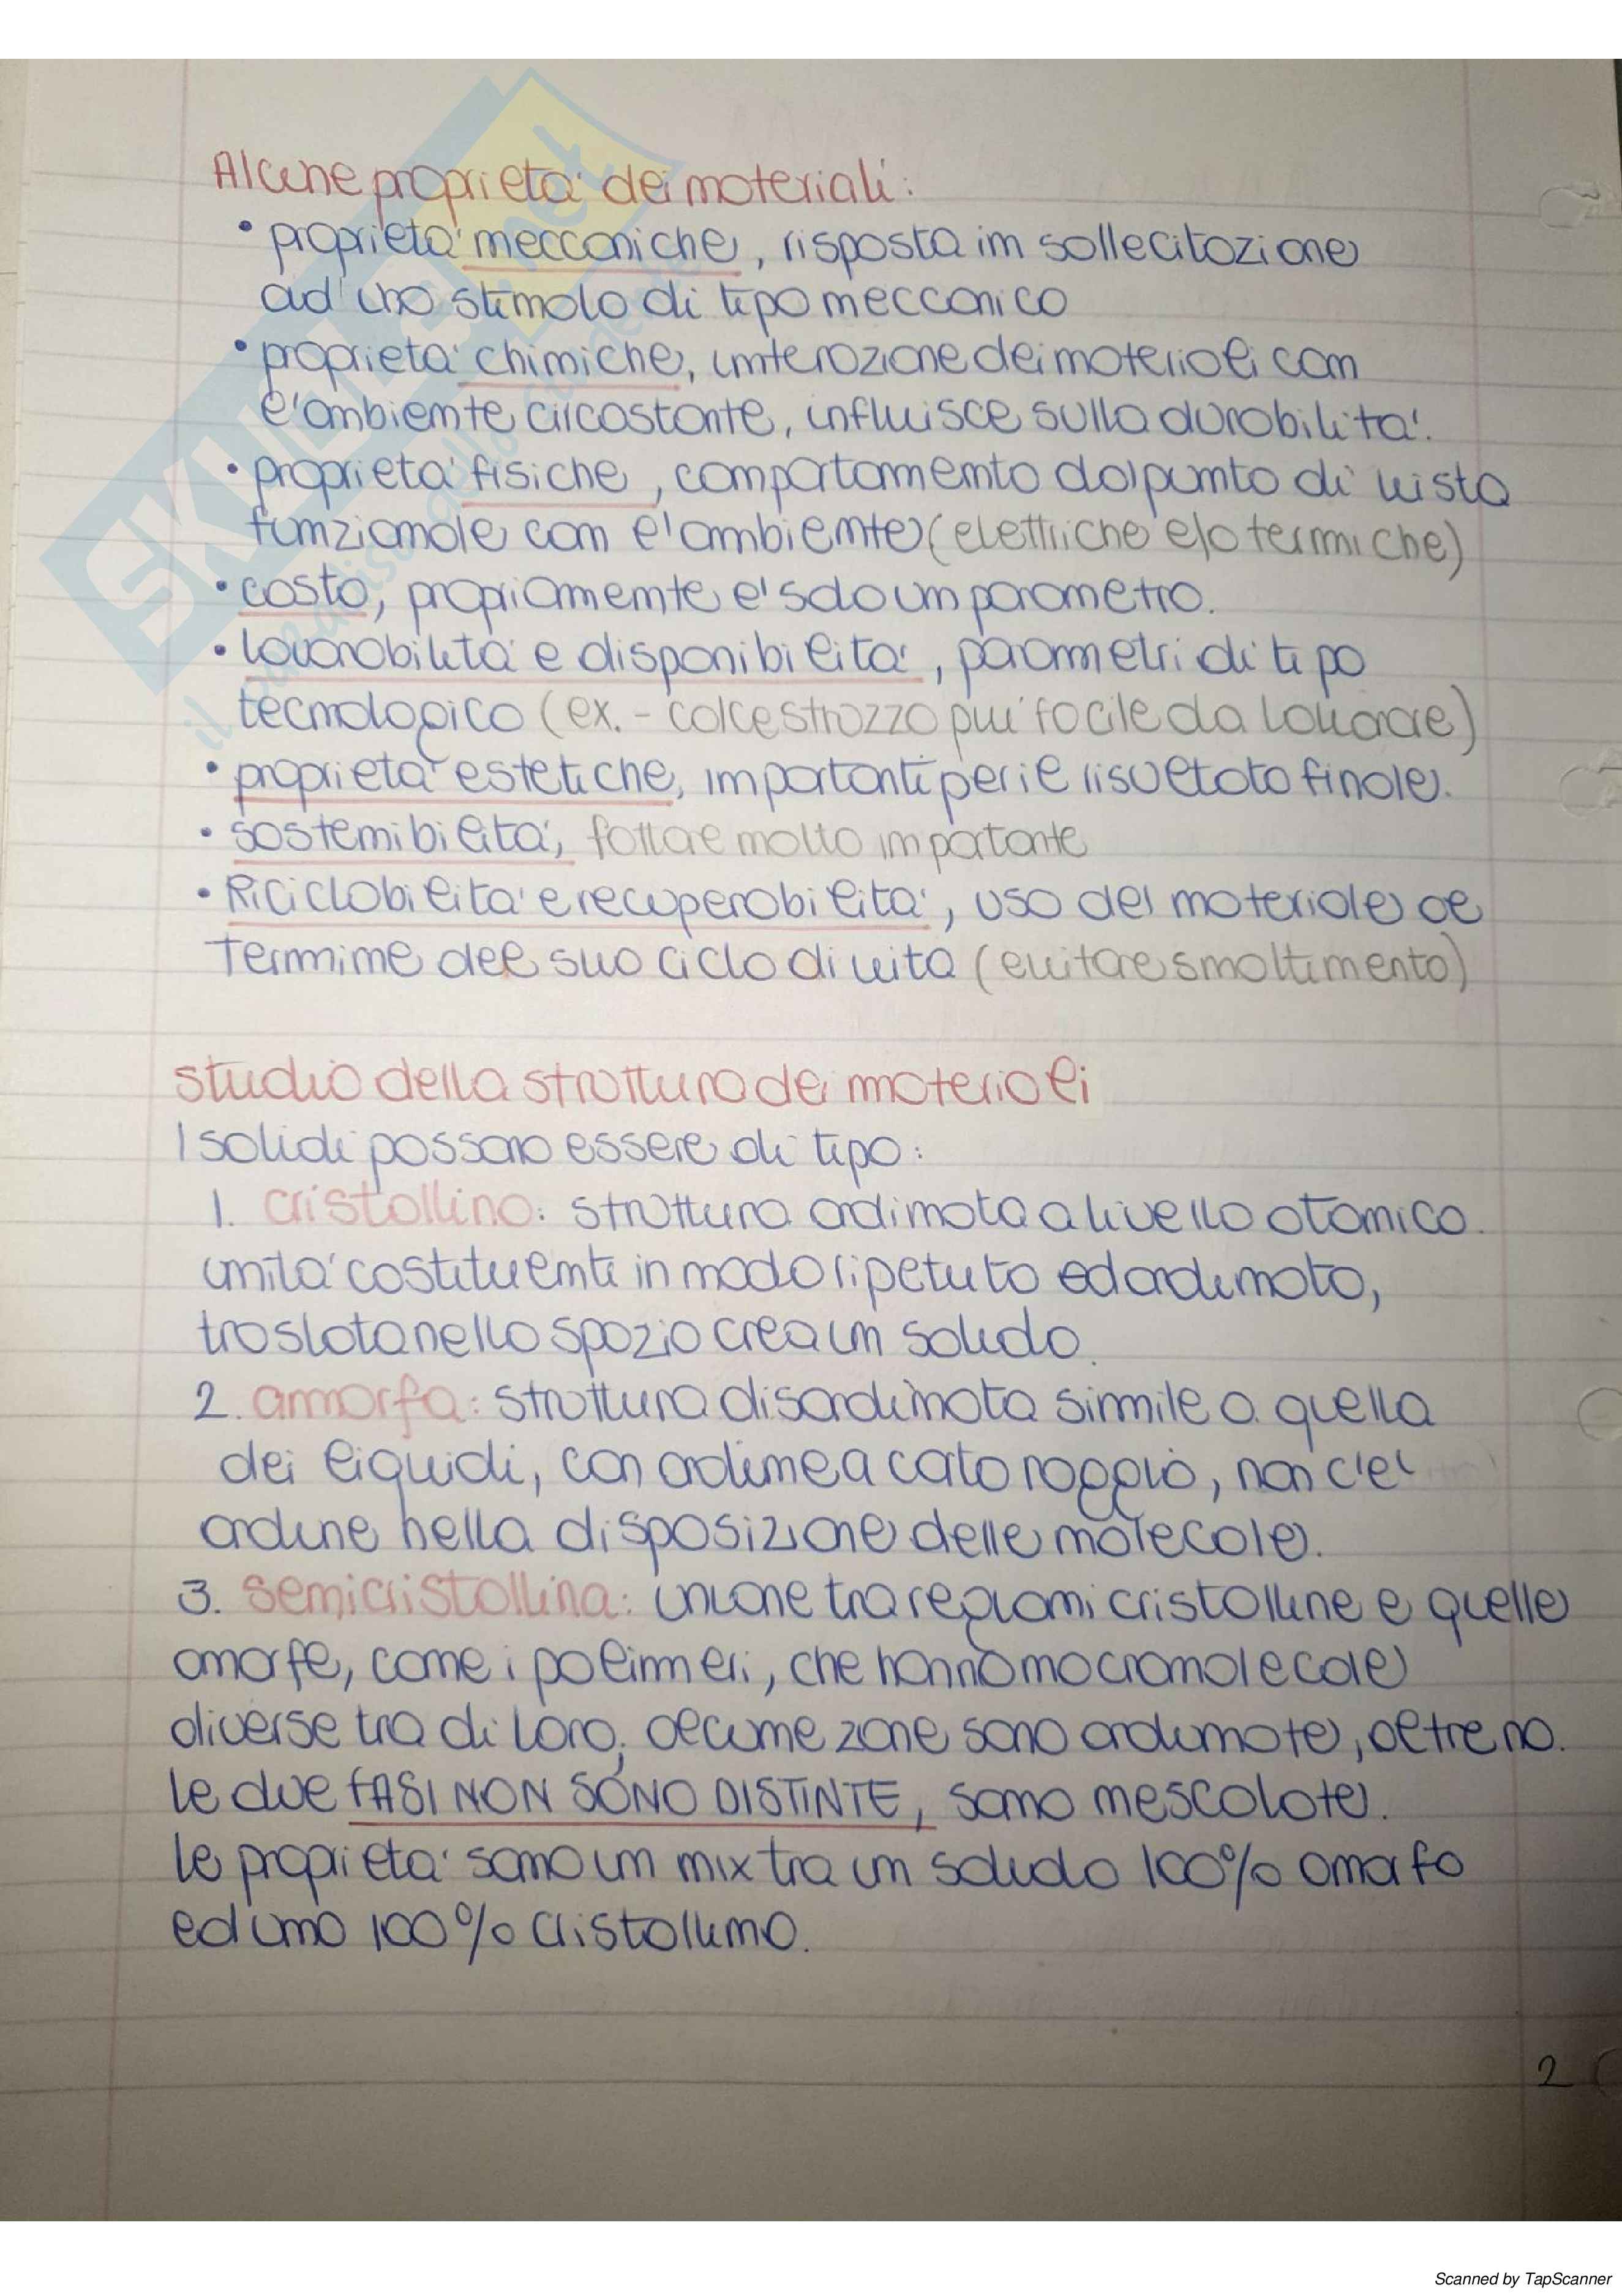 Alcune proprietà dei materiali:
• proprietà meccaniche, risposta in sollecitazione
ad uno stimolo di tipo meccanico
• proprietà chimiche, interazione dei materiali con
l'ambiente circostante, influisce sulla durabilità.
• proprietà fisiche, comportamento dal punto di vista
funzionale con l'ambiente (elettriche e/o termiche)
• costo, propriamente è solo un parametro.
• lavorabilità e disponibilità, parametri di tipo
tecnologico (ex. - calcestruzzo più facile da lavorare)
• proprietà estetiche, importanti per il risultato finale.
• sostenibilità, fattore molto importante
• Riciclabilità e recuperabilità, uso del materiale al
termine del suo ciclo di vita (evitare smaltimento)
studio della struttura dei materiali
I solidi possono essere di tipo:
1. cristallino: struttura ordinata a livello atomico.
unità costituenti in modo ripetuto ed ordinato,
traslata nello spazio crea un solido.
2. amorfa: struttura disordinata simile a quella
dei liquidi, con ordine a corto raggio, non c'è
ordine nella disposizione delle molecole.
3. semicristallina: unione tra regioni cristalline e quelle
amorfe, come i polimeri, che hanno macromolecole
diverse tra di loro; alcune zone sono ordinate, altre no.
le due FASI NON SONO DISTINTE, sono mescolate.
le proprietà sono un mix tra un solido 100% amorfo
ed uno 100% cristallino.
2
SKUOLA.net
Scanned by TapScanner